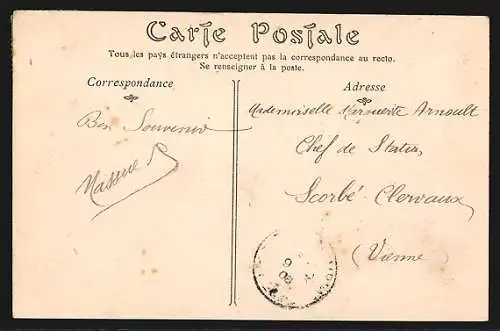 Carte Postale
Tous les pays étrangers n'acceptent pas la correspondance au recto.
Se renseigner à la poste.
Correspondance
Adresse
Bon Souvenir
Mademoiselle Marguerite Arnoult
Chef de Station
Scorbé-Clervaux
(Vienne)